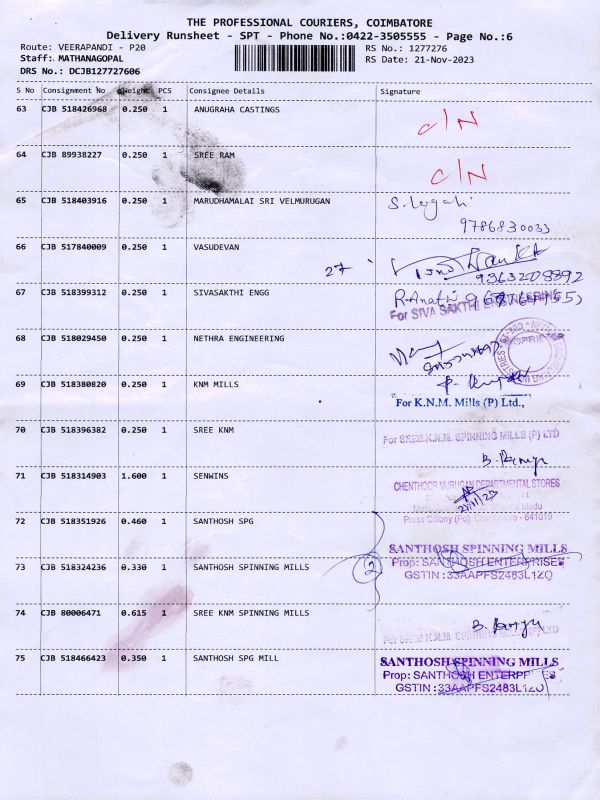 THE PROFESSIONAL COURIERS, COIMBATORE
Delivery Runsheet - SPT - Phone No.:0422-3505555 - Page No.:6
Route: VEERAPANDI - P20 RS No.: 1277276
Staff: MATHANAGOPAL RS Date: 21-Nov-2023
DRS No.: DCJB127727606
S No Consignment No Weight PCS Consignee Details Signature
63 CJB 518426968 0.250 1 ANUGRAHA CASTINGS C/N
64 CJB 89938227 0.250 1 SREE RAM C/N
65 CJB 518403916 0.250 1 MARUDHAMALAI SRI VELMURUGAN
9786830033
66 CJB 517840009 0.250 1 VASUDEVAN
27
9363208892
67 CJB 518399312 0.250 1 SIVASAKTHI ENGG
For SIVA SAKTHI ENGINEERING
68 CJB 518029450 0.250 1 NETHRA ENGINEERING
69 CJB 518380820 0.250 1 KNM MILLS
For K.N.M. Mills (P) Ltd.,
70 CJB 518396382 0.250 1 SREE KNM
For SREE K.N.M. SPINNING MILLS (P) LTD
71 CJB 518314903 1.600 1 SENWINS
CHENTHOOR MURUGAN DEPARTMENTAL STORES
Press Colony (Po), Coimbatore - 641019
72 CJB 518351926 0.460 1 SANTHOSH SPG
73 CJB 518324236 0.330 1 SANTHOSH SPINNING MILLS
2
SANTHOSH SPINNING MILLS
Prop: SANTHOSH ENTERPRISES
GSTIN : 33AAPFS2483L1ZO
74 CJB 80006471 0.615 1 SREE KNM SPINNING MILLS
75 CJB 518466423 0.350 1 SANTHOSH SPG MILL
SANTHOSH SPINNING MILLS
Prop: SANTHOSH
GSTIN : 33AAPFS2483L1ZO